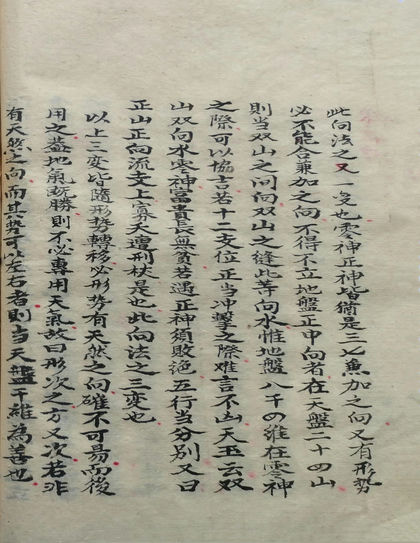 此向法之又一变也零神正神皆猶是三七兼加之向又有形势
必不能合兼加之向不得不立地盤正中向者在天盤二十四山
則当双山之间向双山之缝此等向水惟地盤八干四維在零神
之際可以協吉若十二支位正当冲擊之際难言不凶天玉云双
山双向水零神富貴長無貧若遇正神須敗絶五行当分别又曰
正山正向流支上寡夭遭刑杖是也此向法之三变也
以上三变皆隨形势轉移必形势有天然之向確不可易而後
用之盖地氣既勝則不必專用天氣故曰形次之方又次若非
有天然之向而其势可以左右者則当天盤干維為善也